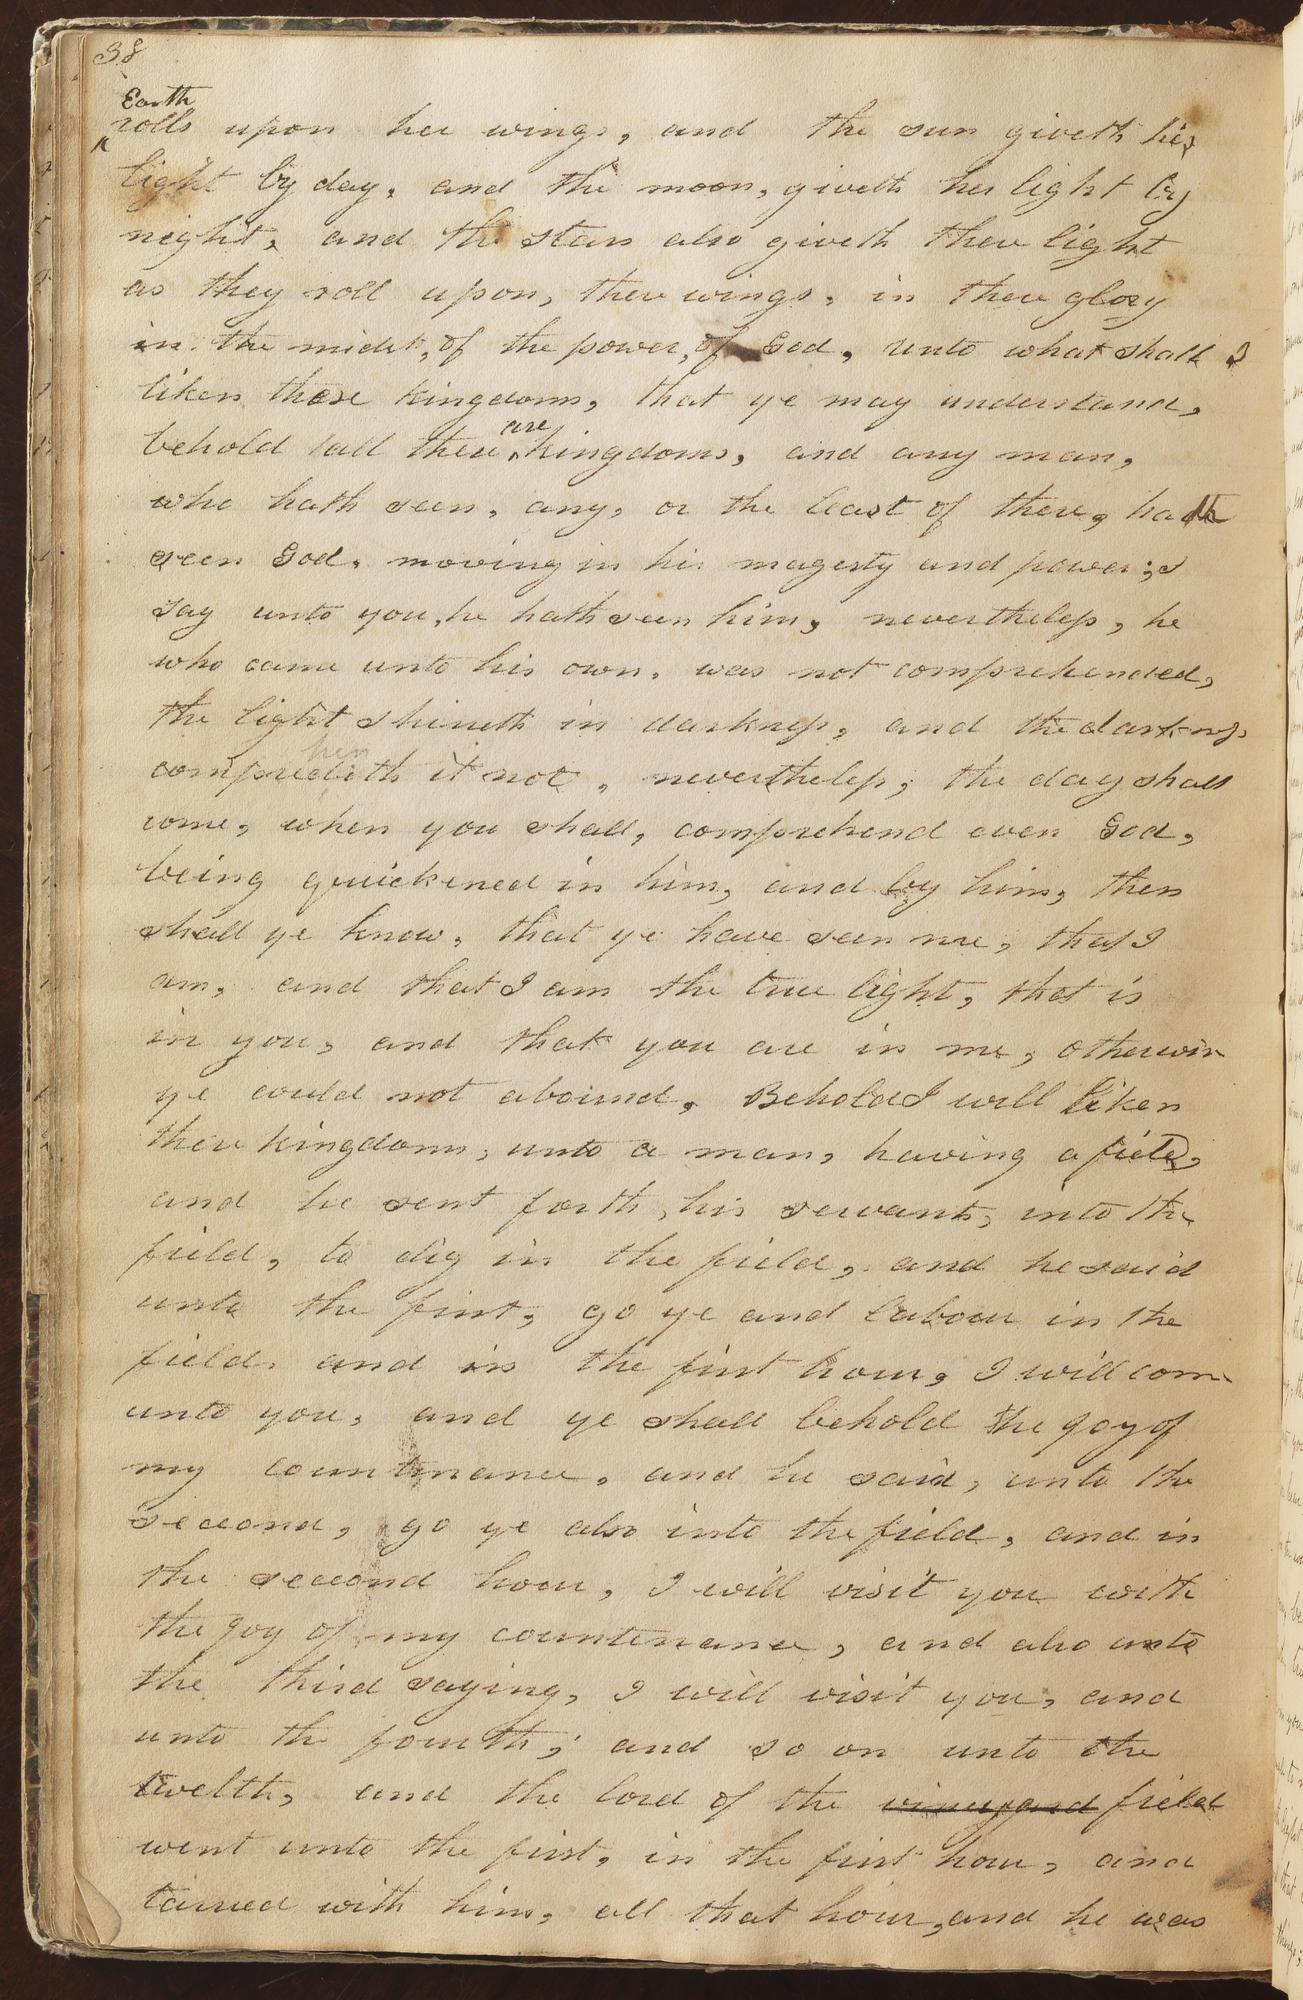 38
Earth
rolls upon her wings, and the sun giveth his
light by day, and the moon, giveth her light by
night, and the stars also giveth there light
as they roll upon, there wings, in there glory
in the midst, of the power, of God, unto what shall I
liken these kingdoms, that ye may understand,
are
behold all these ^ kingdoms, and any man,
who hath seen, any, or the least of these, hath
seen God, moving in his magesty and power; I
say unto you, he hath seen him, nevertheless, he
who came unto his own, was not comprehended,
the light shineth in darkness, and the darkness
hen
compredeth it not, nevertheless; the day shall
come, when you shall, comprehend even God,
being quickened in him, and by him, then
shall ye know, that ye have seen me, that I
am, and that I am the true light, that is
in you, and that you are in me, otherwise
ye could not abound, Behold I will liken
these kingdoms, unto a man, having a field,
and he sent forth, his servants, into the
field, to dig in the field, and he said
unto the first, go ye and labour in the
field, and in the first hour, I will come
unto you, and ye shall behold the joy of
my countinance, and he said, unto the
second, go ye also into the field, and in
the second hour, I will visit you with
the joy of my countenance, and also unto
the third saying, I will visit you, and
unto the fourth; and so on unto the
twelth, and the lord of the vineyard field
went unto the first, in the first hour, and
tarried with him, all that hour, and he was